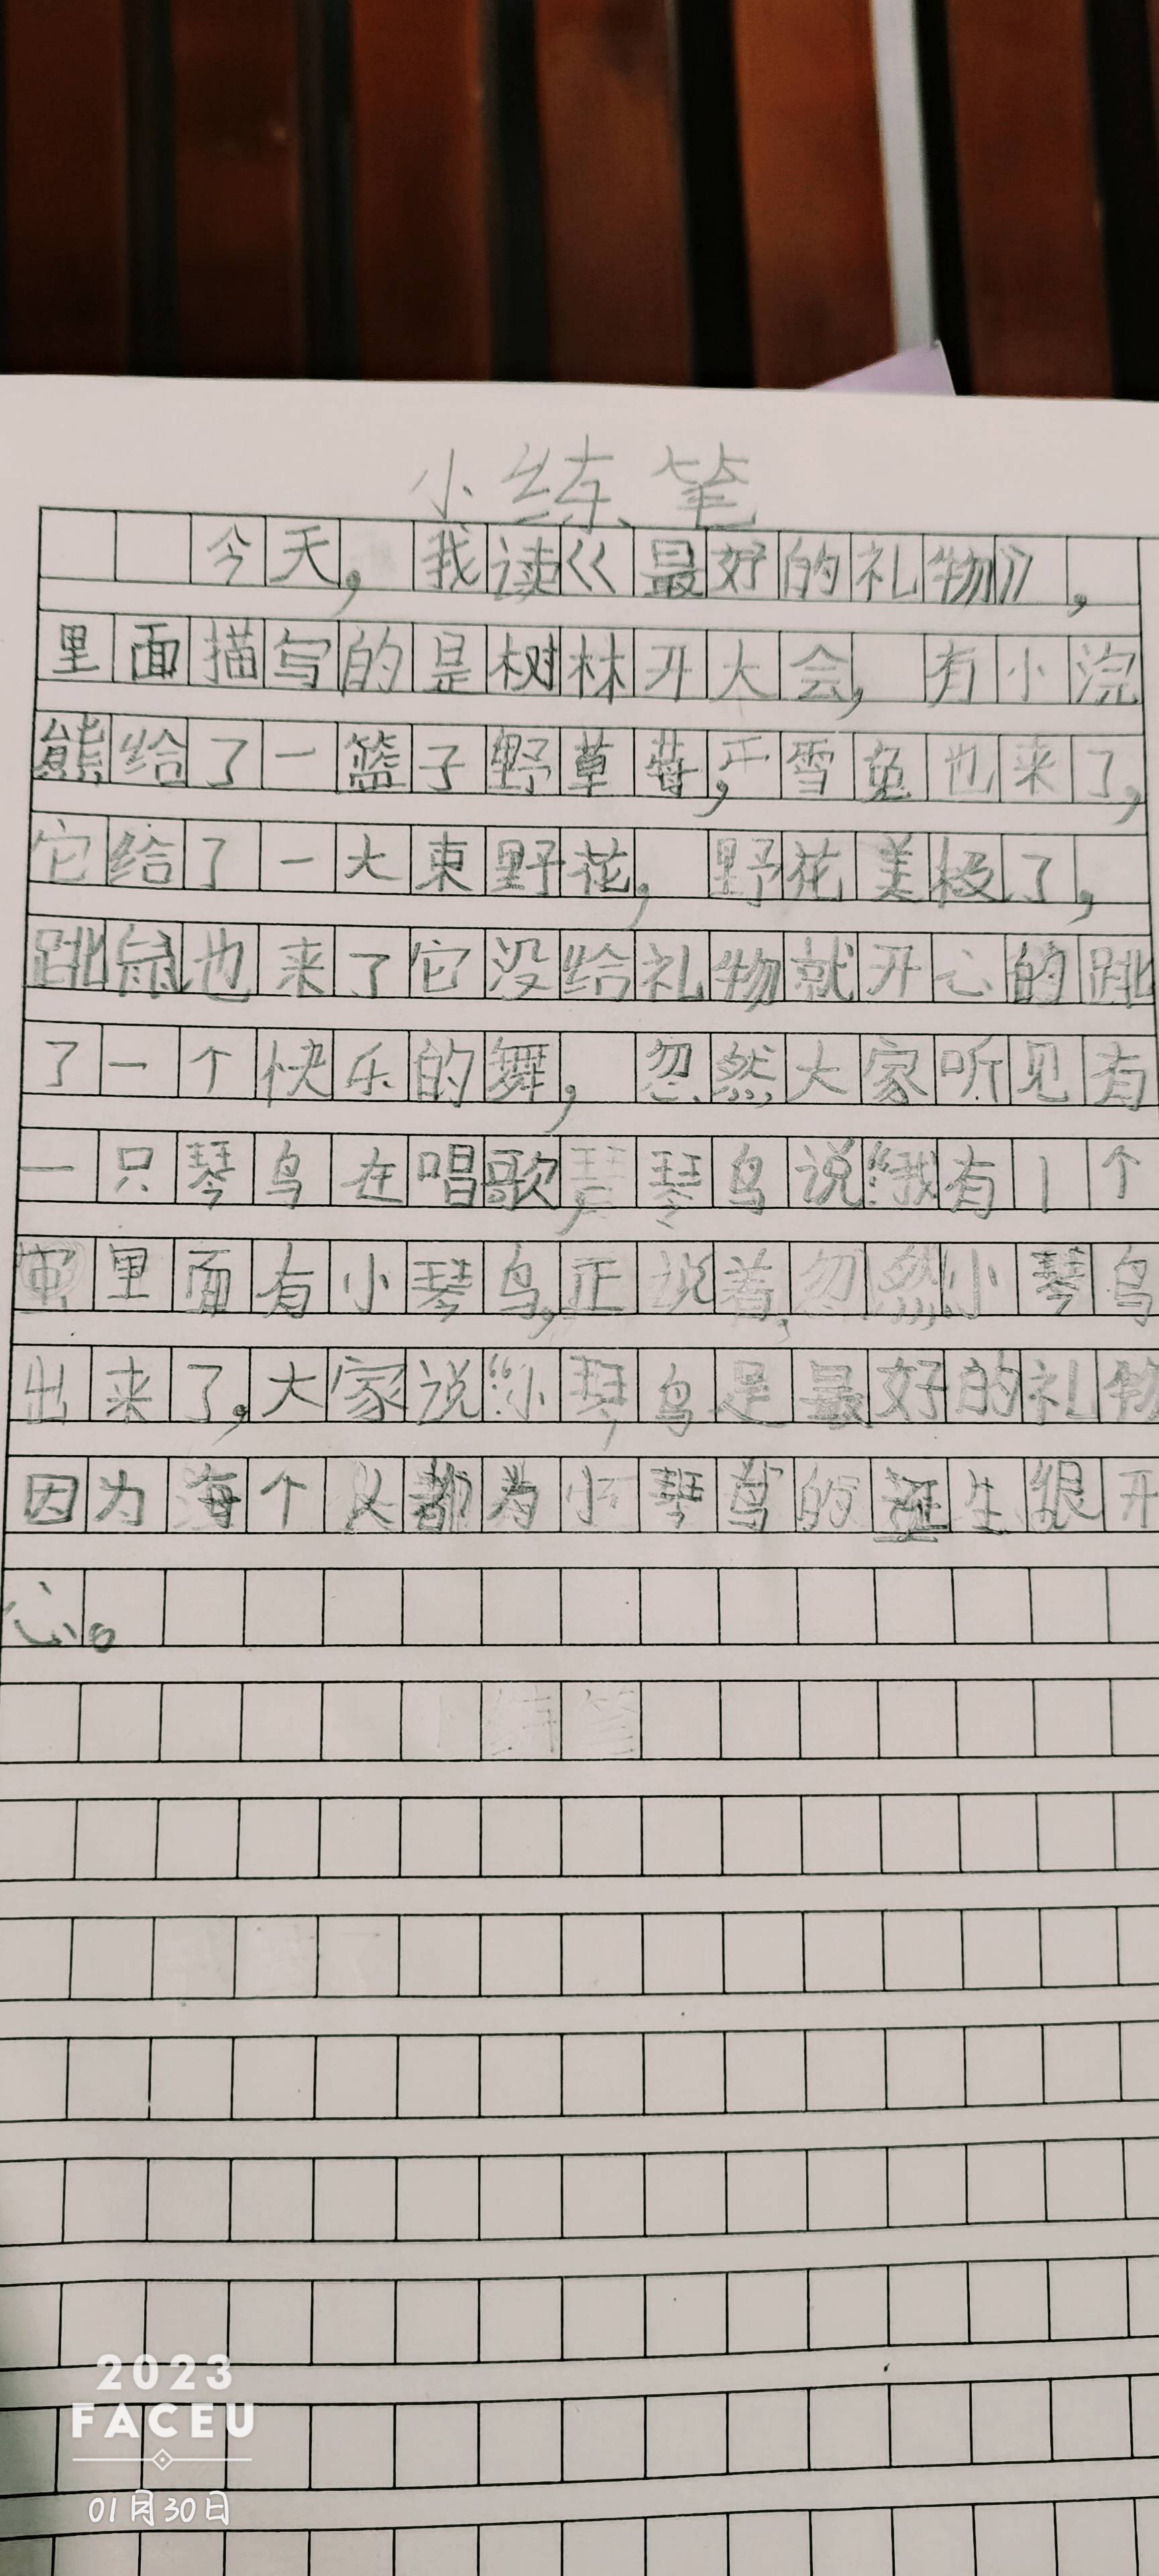 小练笔
今天，我读《最好的礼物》，
里面描写的是树林开大会，有小浣
熊给了一篮子野草莓，雪兔也来了，
它给了一大束野花，野花美极了，
跳鼠也来了它没给礼物就开心的跳
了一个快乐的舞，忽然大家听见有
一只琴鸟在唱歌，琴鸟说“我有1个
里面有小琴鸟，正说着，忽然小琴鸟
出来了，大家说“小琴鸟是最好的礼物
因为每个人都为小琴鸟的诞生很开
心。
2023
FACEU
01月30日